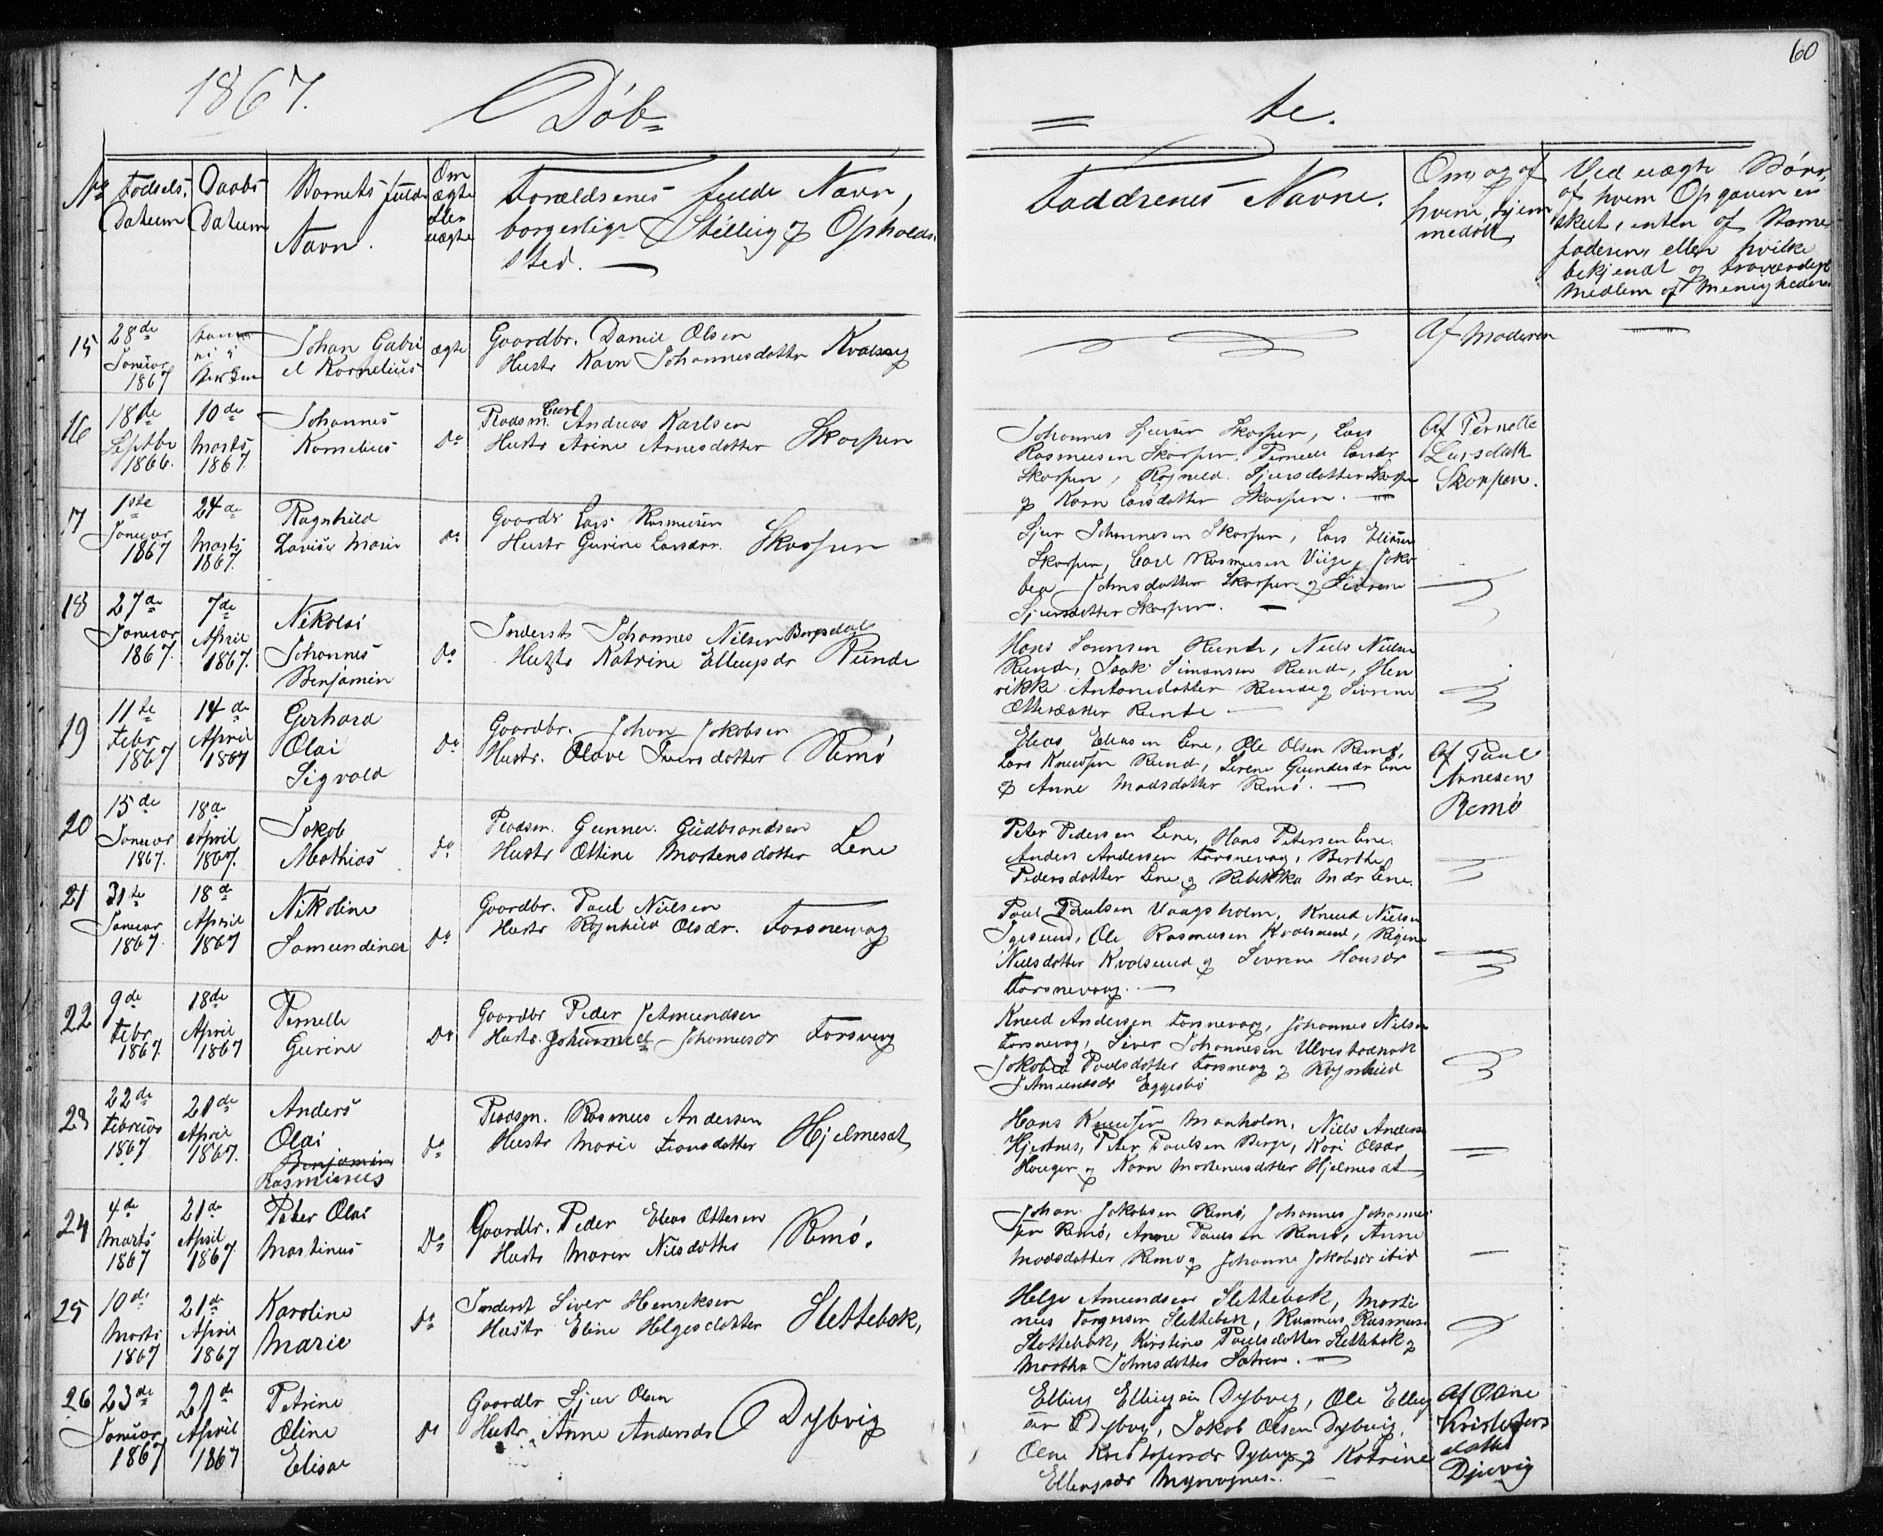 60
1867.
Døb=
= te.
No
Fødsels Datum
Daabs Datum
Barnets fulde Navn.
Om ægte eller uægte
Forældrenes fulde Navn,
borgerlige Stilling & Opholds
sted. —
Faddrenes Navne.
Om og af hvem hjem medøbt
Ved uægte Børn,
af hvem Opgaven er
skeet, enten af Barne
faderen, eller hvilke
bekjendt og troværdigt
Medlem af Menigheden
15
28de Januar 1867
Johan Gabri
el Kornelius
ægte
Gaardbr. Daniel Olsen
Hustr Karn Johannesdotter
Af Moderen
16
18de Septbr 1866.
10de Marts 1867.
Johannes
Kornelius
Do
Pladsm. Carl Andreas Karlsen
Hustr Arine Arnesdotter Skorpen
Johannes Sjursen Skorpen, Lars
Rasmusen Skorpen, Pernelle Larsdr
Skorpen, Ragnild Sjursdotter Skorpen
& Karn Larsdotter Skorpen.
Af Pernelle
Larsdatt
Skorpen.
17
1ste Januar 1867
24de Marts 1867.
Ragnhild
Lovise Marie
Do
Gaardr Lars Rasmusen
Hustr Gurine Larsdr. Skorpen
Sjur Johannesen Skorpen, Lars Eliasen
Skorpen, Carl Rasmusen Viige, Jako
bea Johnsdotter Skorpen & Sivrine
Sjursdotter Skorpen.
18
27de Januar 1867.
7de April 1867.
Nikolai
Johannes
Benjamin
Do
Inderst Johannes Nilsen Bergsdal
Hustr Katrine Ellingsdr Runde
Hans Larensen Runde, Niels Nielsen
Runde, Isak Simonsen Runde, Hen
rikke Antonsdotter Runde & Sivrine
Ottesdatter Runde
19
11te Febr 1867
14de April 1867
Gerhard
Olai
Sigvald
Do
Gaardbr. Johan Jakobsen
Hustr. Olave Iversdotter Remø
Elias Eliasen Lene, Ole Olsen Remø,
Lars Knudsen Rund, Serene Gundersdr Lene
& Anne Madsdotter Remø.
Af Paul
Arnesen
Remø
20
15de Januar 1867.
18de April 1867.
Jakob
Mathias
Do
Pladsm. Gunner Gudbrandsen
Hustr Ottine Mortensdotter Lene
Peter Pedersen Lene, Hans Petersen Lene.
Anders Andersen Torsnevag, Berthe
Pedersdotter Lene & Rebekka Mdr Lene.
21
31te Januar 1867.
18d April 1867
Nikoline
Samundinea
Do
Gaardbr. Paul Nielsen
Hustr Ragnhild Olsdr. Torsnevag
Paul Paulsen Vaagsholm, Knud Nielsen
Igesund, Ole Rasmusen Kvalsund, Regine
Nielsdotter Kvalsund & Sivrine Hansdr
Torsnevag.
22
9de Febr 1867.
18de April 1867
Pernelle
Gurine
Do
Gaardbr Peder Jetmundsen
Knud Andersen Torsnevag, Johannes Nilsen
Torsnevag, Siver Johannesen
Jakobea Paulsdotter Torsnevag & Ragnhild
Jetmundsdr Eggesbø
23
22de Februar 1867
21de April 1867.
Anders
Olai
Benjamin
Rasminus
Do
Pladsm. Rasmus Andersen
Hustr Marie Hjelmeset
Hans Knudsen Monholm, Niels Anders
Hjertnes, Peter Paulsen Berge, Kari Olsdr
Hauger & Karn Mortensdotter Hjelmeset
24
4de Marts 1867
21de April 1867.
Peter Olai
Martinus
Do
Gaardbr. Peder Elias Ottesen
Hustr Maren Nilsdotter Remø.
Johan Jakobsen Remø, Johannes Johannes
sen Remø, Anne Paulsen Remø, Anne
Madsdotter Remø & Johanne Jakobsdr ibid
25
10de Marts 1867
21de April 1867
Karoline
Marie
Do
Inderst Siver Henriksen
Hustr Eline Helgesdotter Slettebak,
Helge Amundsen Slettebak, Marti
nus Torgersen Slettebak, Rasmus Rasmus
Slettebak, Kirstine Paulsdotter Slettebak &
Martha Johnsdotter Sætren.
26
23de Januar 1867
21de April 1867
Petrine
Oline
Elisae
Do
Gaardbr Sjur Olsen
Hustr Anne Andersdr Dybvig
Elling Ellingsen Dybvig, Ole Elling
sen Dybvig, Jakob Olsen Dybvig,
Oline Kristofersdr Dybvig & Katrine
Ellingsdr Myrvagnes.
Af Oline
Kristofers
datter
Djuvig